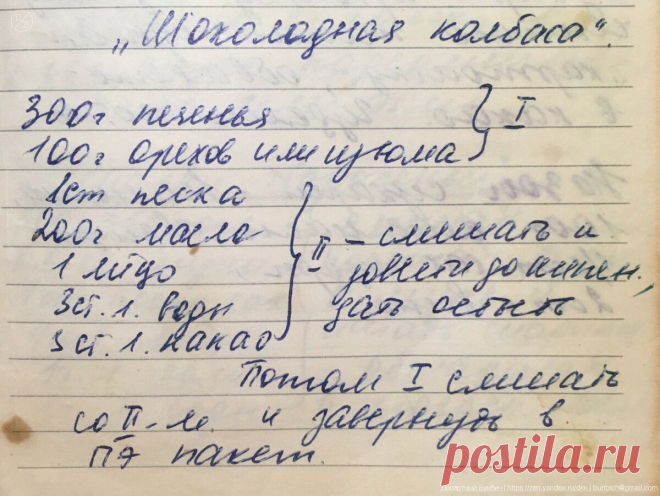 „Шоколадная колбаса“.
300г печенья
100г орехов или изюма } I
1ст песка
200г масло
1 яйцо
3ст. л. воды
3 ст. л. какао
II – смешать и
довести до кипен.,
дать остыть
Потом I смешать
со II-м. и завернуть в
ПЭ пакет.
postila.ru